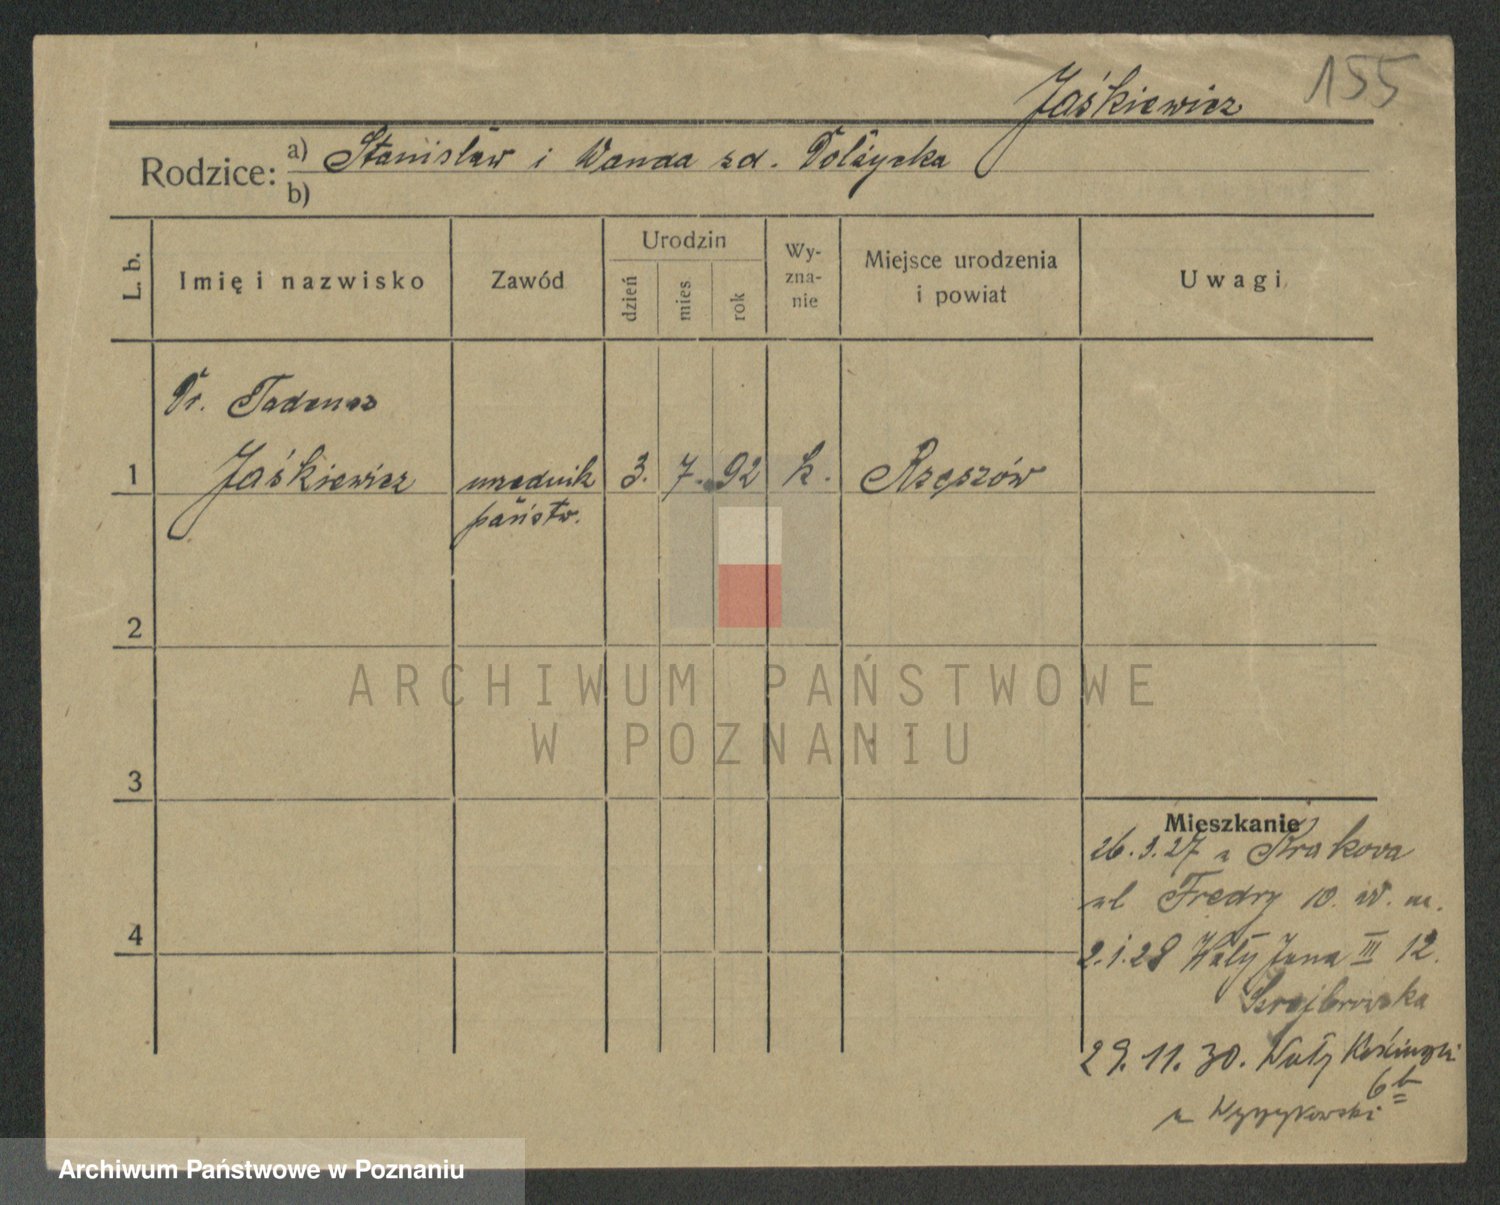 155
Jaśkiewicz
Rodzice: a) Stanisław i Wanda zd. Dolżycka
b)
L. b.
Imię i nazwisko
Zawód
Urodzin
dzień
mies
rok
Wy-
zna-
nie
Miejsce urodzenia
i powiat
Uwagi
Dr. Tadeusz
1 Jaśkiewicz urzędnik 3. 7. 92 k. Rzeszów
państw.
2
3
4
Mieszkanie
26.3.27 z Krakowa
ul Fredry 10. W. m.
2.1.28 Wały Jana III 12.
29.11.30. Wały
6b
u
ARCHIWUM PAŃSTWOWE
W POZNANIU
Archiwum Państwowe w Poznaniu